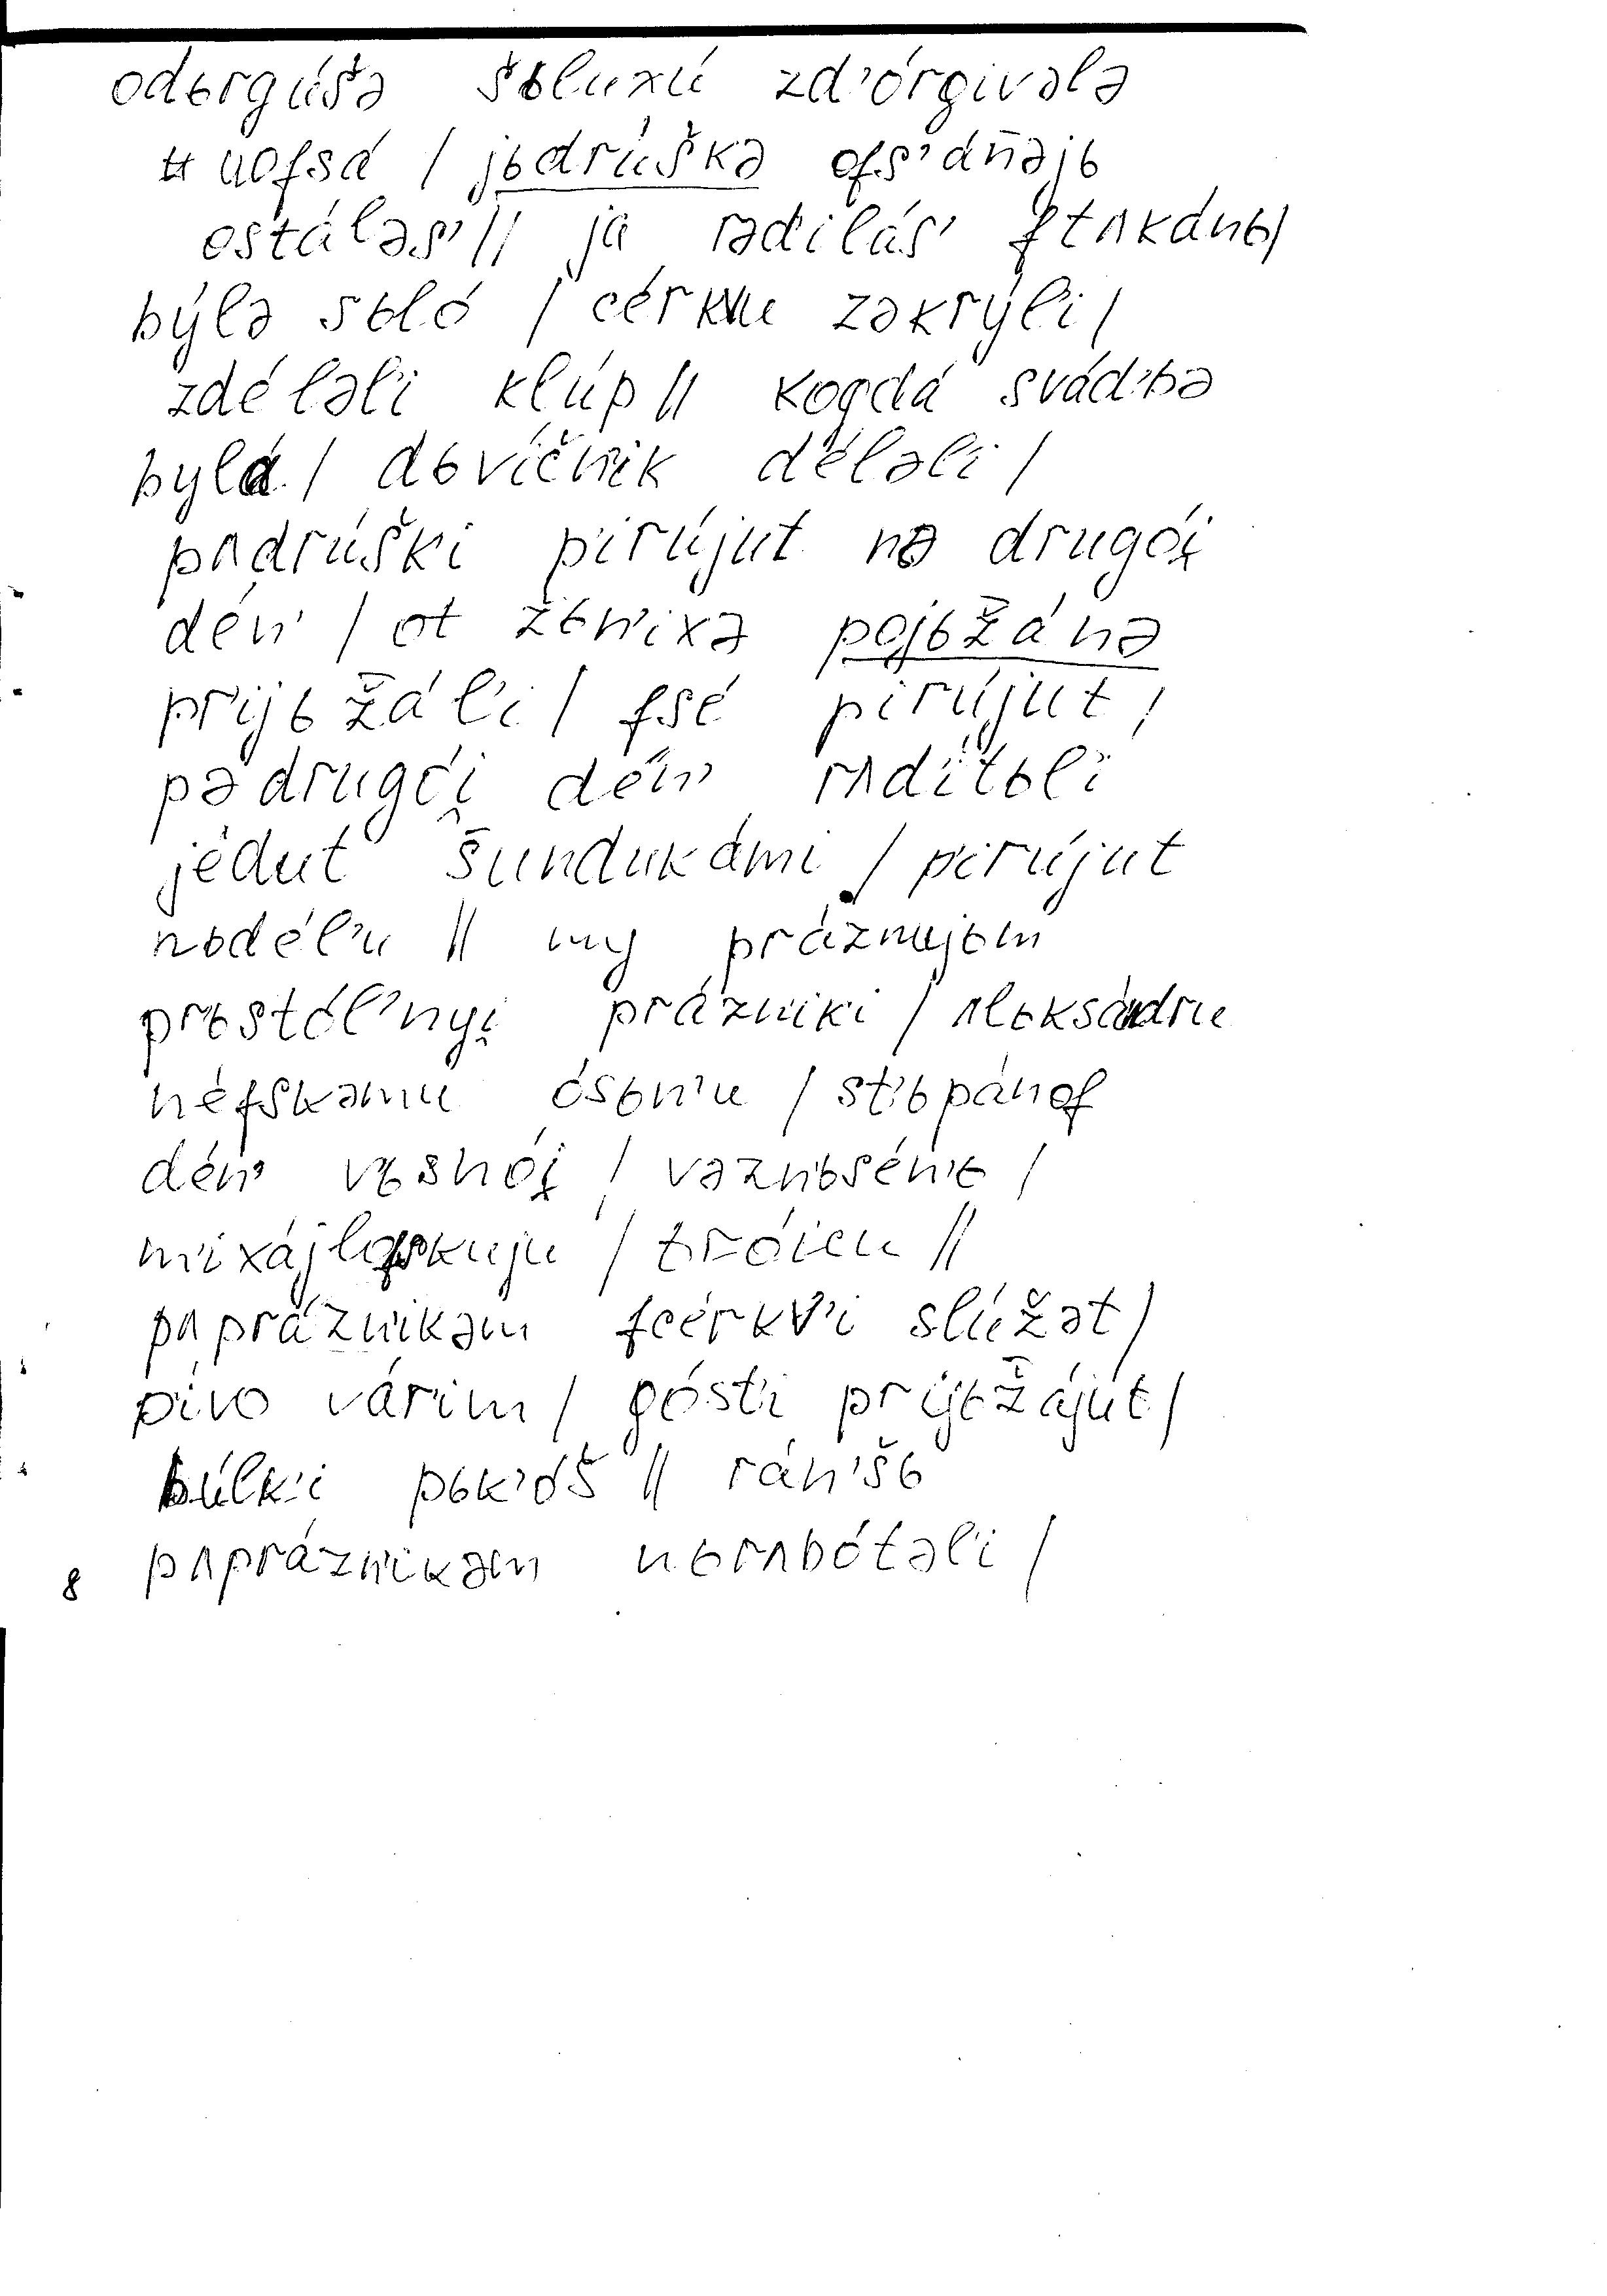 odьrgúšə šьluxú zd'órgivələ
# uofsá / jьdrúškə ofs'án̄əjь
ostáləs' // ja rədilás' ftʌkánь/
býlə sьló / cérkvu zəkrýli /
zdéləli klúp // kogdá svád'bə
bylá / dьvíčnik déləli /
pʌdrúški pirújut nə drugói̯
dén' / ot žьnixə pojьž̄ánə
prijьž̄áli / fsé pirújut /
pədrugói̯ dén' rʌdítьli
jédut šundukámi / pirújut
nьdél'u // my práznujьm
prьstól'nyi̯ prázniki / ʌlьksándru
néfskəmu ósьn'u / st'ьpánof
dén' vьsnói̯ / vəznьsén'ь /
mixájlofskuju / tróicu //
pʌpráznikəm fcérkv'i slúžət /
pívo várim / gósti prijьž̄ájut /
búlk'i pьk'óš // rán'šь
pʌpráznikəm nьrʌbótəli /
8